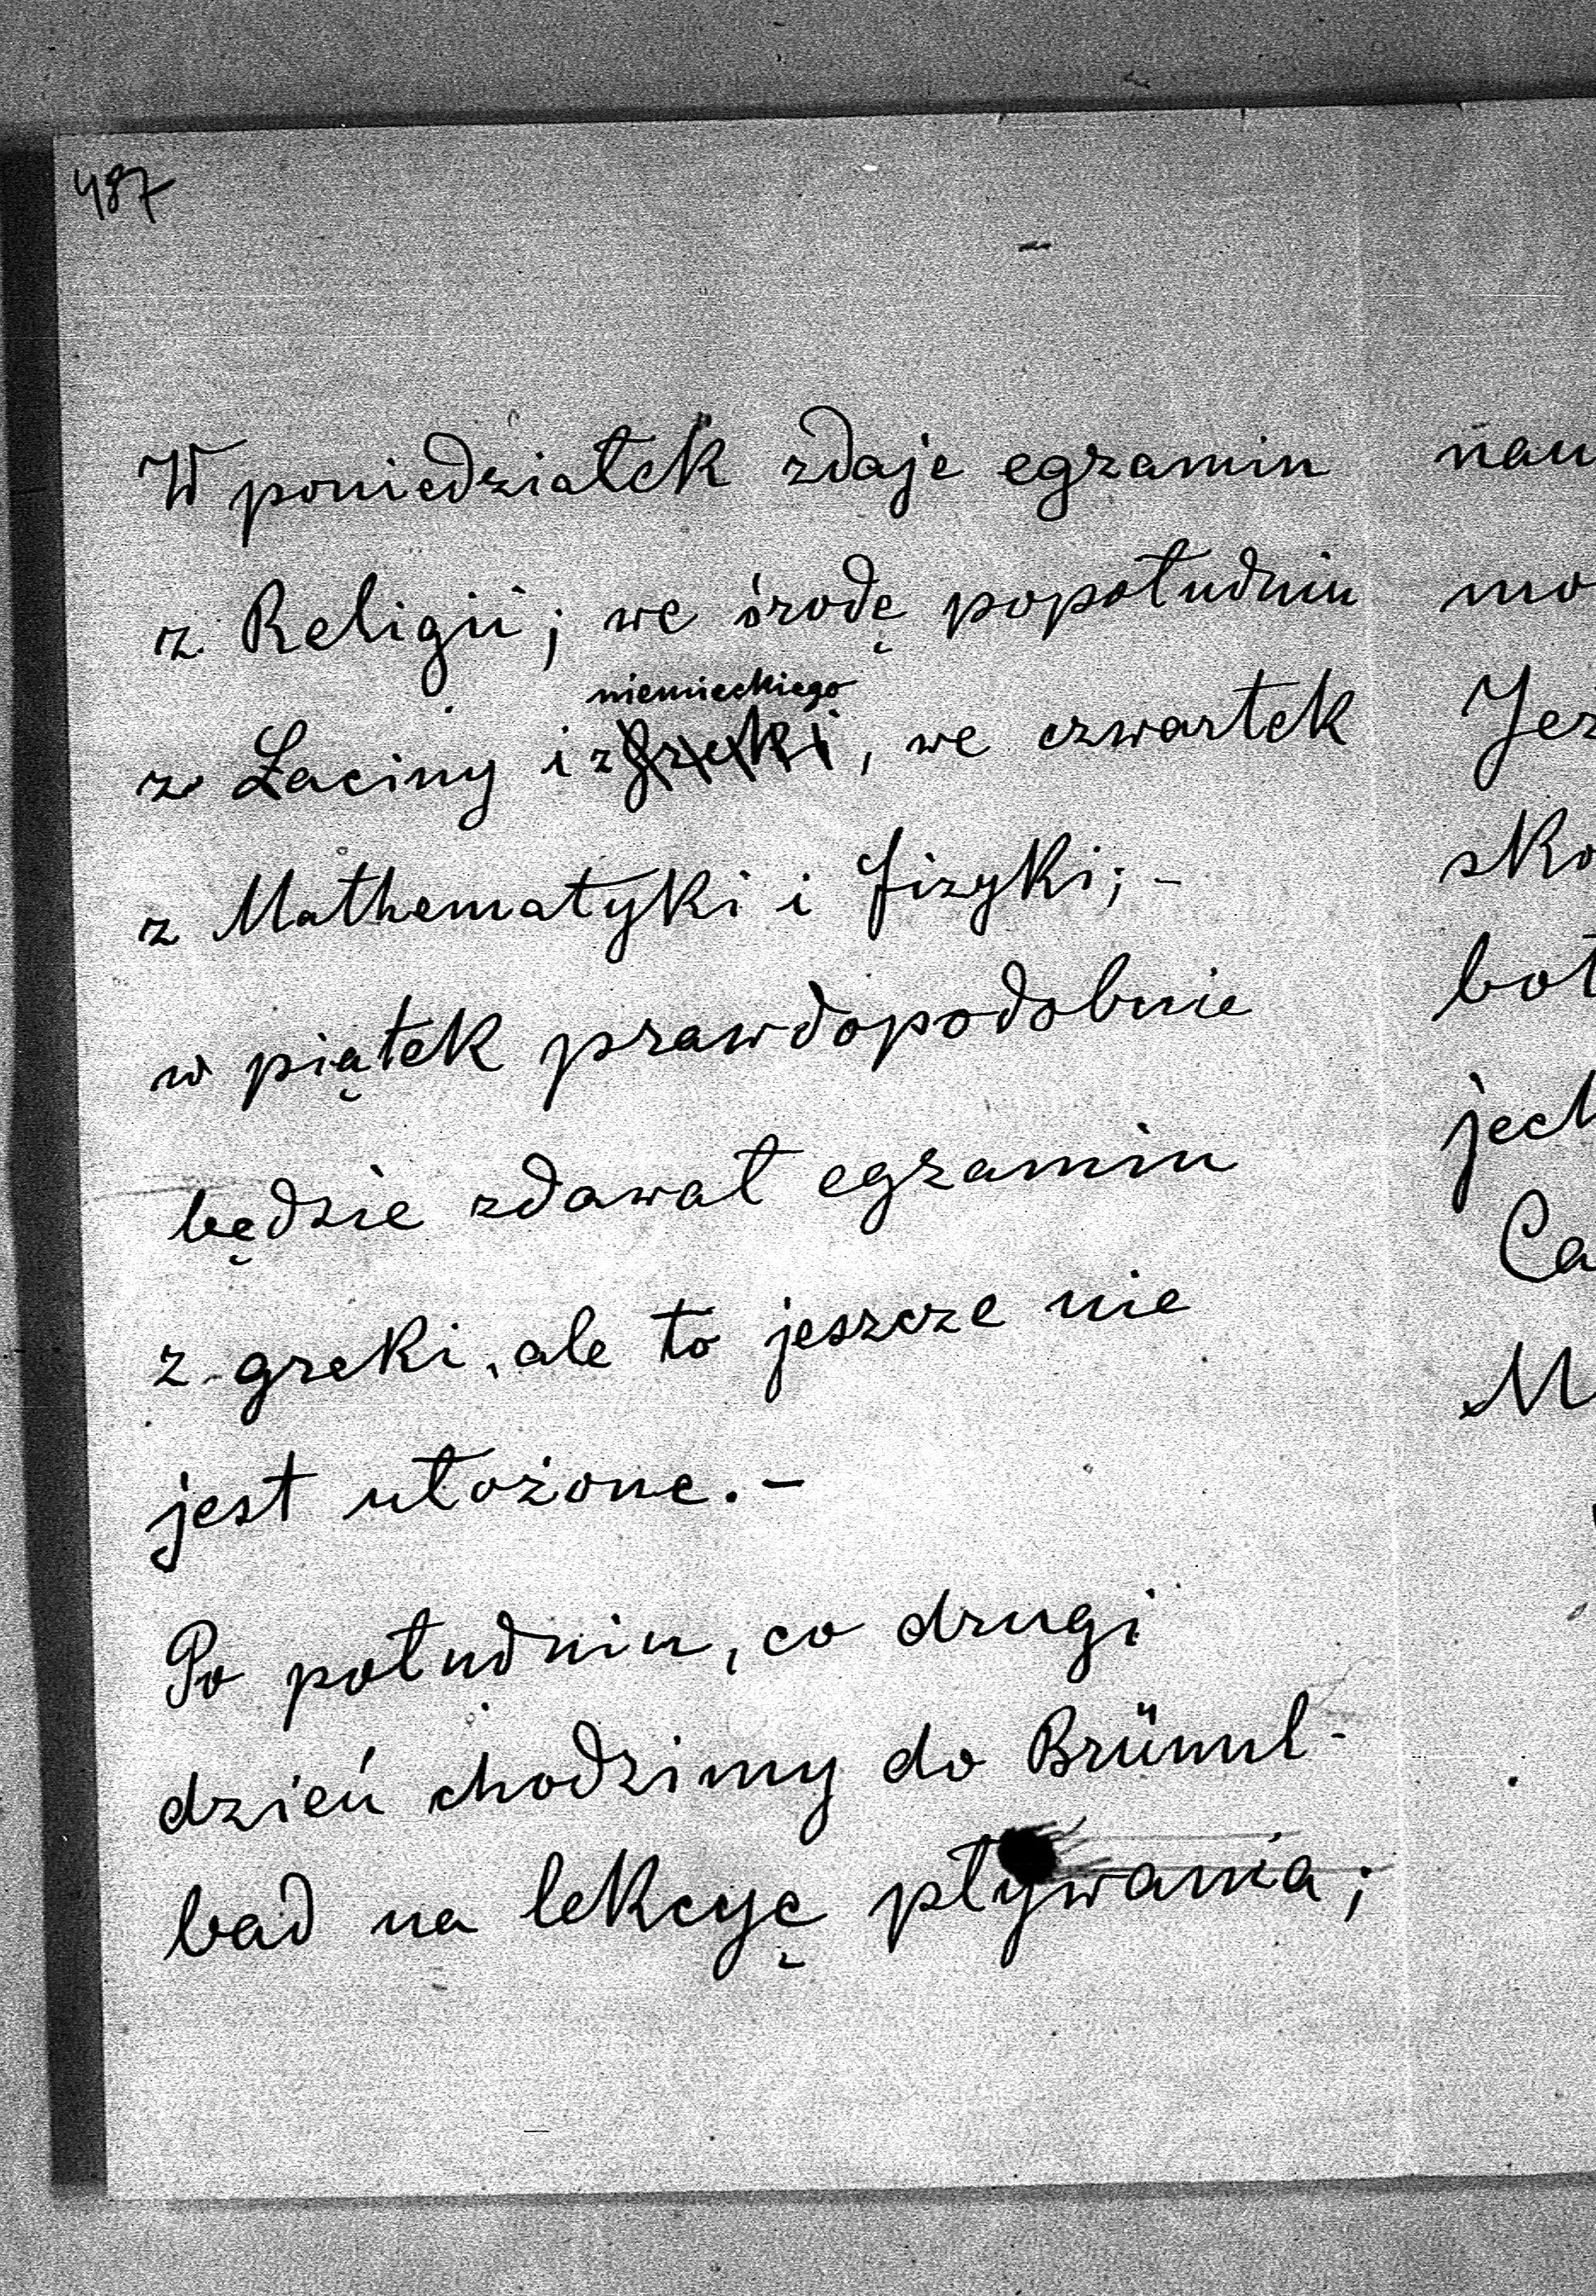 487
W poniedziałek zdaje egzamin
z Religii; we środę popołudniu
niemieckiego
z Łaciny i z greki, we czwartek
z Mathematyki i fizyki; -
w piątek prawdopodobnie
będzie zdawał egzamin
z greki, ale to jeszcze nie
jest ułożone. -
Po południu, co drugi
dzień chodzimy do Brünnl-
bad na lekcyę pływania;